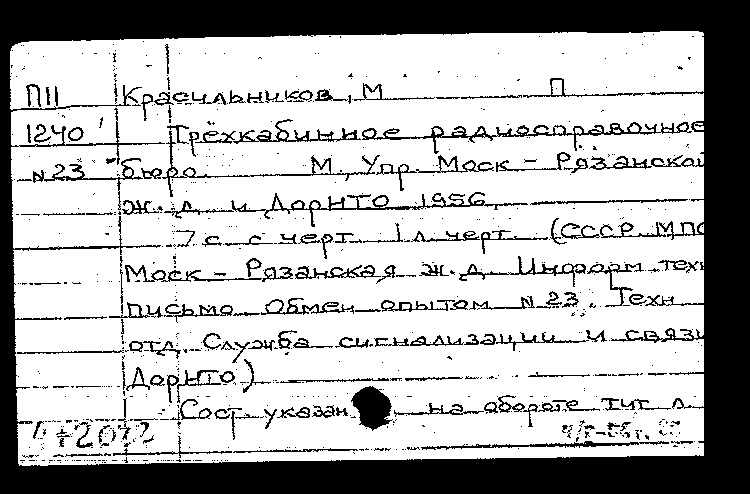 П11 Красильников, М П
1240 Трёхкабинное радиосправочное
N23 бюро. М., Упр. Моск - Рязанской
ж.д. и ДорНТО 1956,
7 с. с черт. 1 л. черт. (СССР. МПС
Моск - Рязанская ж.д. Информ. техн
письмо. Обмен опытом N 23. Техн
отд. Служба сигнализации и связи
ДорНТО)
Сост. указан на обороте тит л.